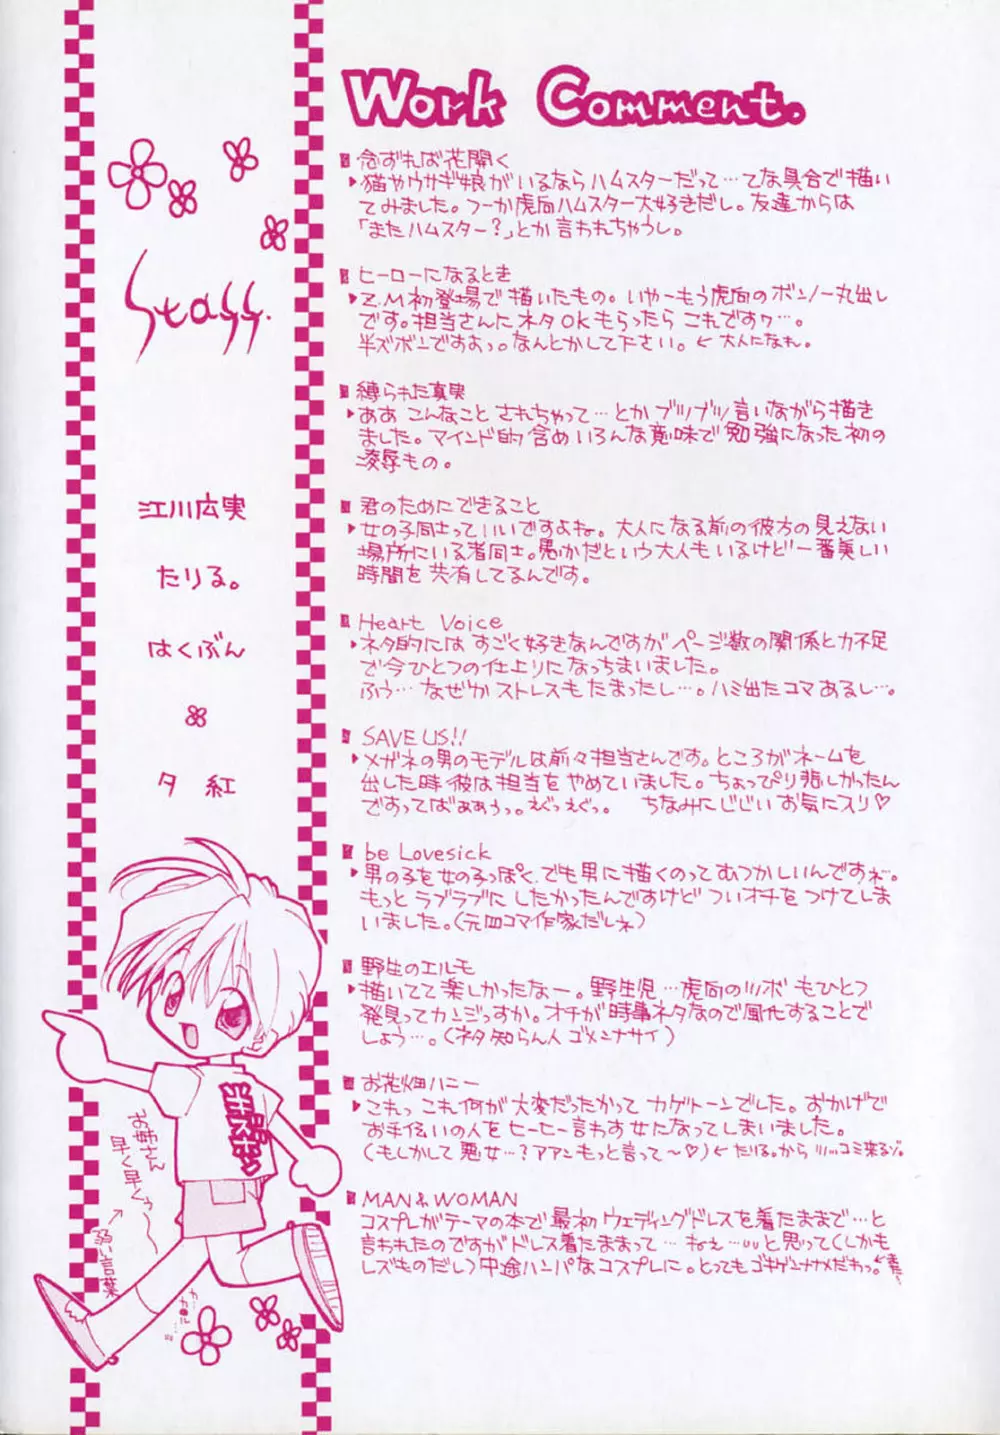 Work Comment.
念ずれば花開く
猫やウサギ娘がいるならハムスターだって…てな具合で描い
てみました。つーか虎向ハムスター大好きだし。友達からは
「またハムスター?」とか言われちゃうし。
ヒーローになるとき
Z.M初登場で描いたもの。いやーもう虎向のボンノー丸出し
です。担当さんにネタOKもらったらこれですヮ…。
半ズボンですよっ。なんとかして下さい。←大人になれ。
縛られた真実
ああこんなことされちゃって…とかブツブツ言いながら描き
ました。マインド的含めいろんな意味で勉強になった初の
凌辱もの。
君のためにできること
女の子同士っていいですよね。大人になる前の彼方の見えない
場所にいる者同士。愚かだという大人もいるけど一番美しい
時間を共有してるんです。
Heart Voice
ネタ的にはすごく好きなんですがページ数の関係と力不足
で今ひとつの仕上りになっちまいました。
ふぅ…なぜかストレスもたまったし…。ハミ出たコマあるし…。
SAVE US!!
メガネの男のモデルは前々担当さんです。ところがネームを
出した時彼は担当をやめていました。ちょっぴり悲しかったん
ですってばぁぁぅっ。えぐっえぐっ。 ちなみにじじいお気にスリ♡
be Lovesick
男の子を女の子っぽく、でも男に描くのってむつかしいんですね。
もっとラブラブにしたかったんですけどついオチをつけてしま
いました。(元四コマ作家だしネ)
野生のエルモ
描いてて楽しかったなー。野生児…虎向のツボもひとつ
発見ってカンジっすか。オチが時事ネタなので風化することで
しょう…。(ネタ知らん人ゴメンナサイ)
お花畑ハニー
これっこれ何が大変だったかってカゲトーンでした。おかげで
お手伝いの人をヒーヒー言わす女になってしまいました。
(もしかして悪女…?アアンもっと言って〜♡)←たりる。からツッコミ来るゾ。
MAN & WOMAN
コスプレがテーマの本で最初ウェディングドレスを着たままで…と
言われたのですがドレス着たままって…ねぇ…と思って(しかも
レズものだし)中途ハンパなコスプレに。とってもゴキゲンナナメだわっ。
Staff.
江川広実
たりる。
はくぶん
夕紅
お姉さん
早く早くぅ〜
弱い言葉